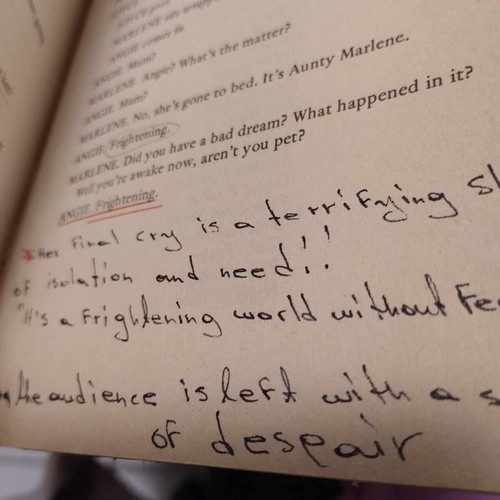 MARLENE
ANGIE comes in.
ANGIE. Mum?
MARLENE. Angie? What's the matter?
ANGIE. Mum?
MARLENE. No, she's gone to bed. It's Aunty Marlene.
ANGIE. Frightening.
MARLENE. Did you have a bad dream? What happened in it?
Well you're awake now, aren't you pet?
ANGIE. Frightening.
Her final cry is a terrifying
of isolation and need!!
"It's a frightening world without
the audience is left with a
of despair